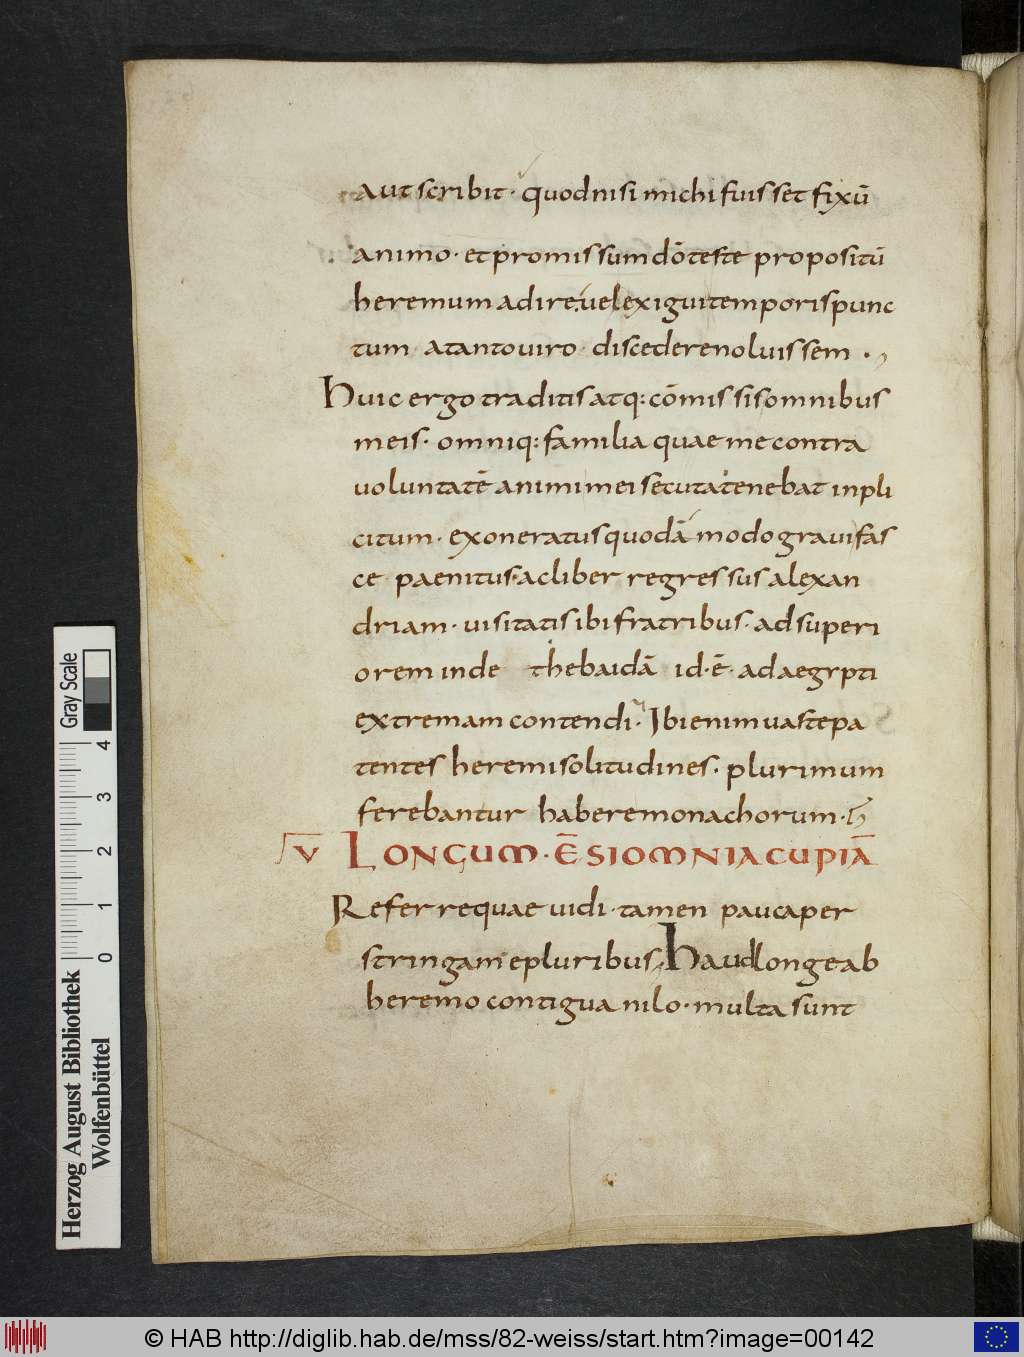 aut scribit · quod nisi michi fuisset fixū
animo · et promissum dō teste propositū
heremum adire uel exigui temporis punc
tum a tanto uiro · discedere noluissem ·,
Huic ergo traditis atq: cōmissis omnibus
meis · omniq: familia quae me contra
uoluntatē animi mei secuta tenebat inpli
citum · exoneratus quodā modo graui fas
ce paenitus · ac liber regressus alexan
driam · uisitatis ibi fratribus · ad superi
orem inde thebaidā id · ē · ad aegypti
extremam contendi · Ibi enim uaste pa
tentes heremi solitudines · plurimum
ferebantur habere monachorum ·
V LONGUM · Ē SI OMNIA CUPIĀ
Referre quae uidi · tamen pauca per
stringam e pluribus, Haud longe ab
heremo contigua nilo · multa sunt
Gray Scale
4
3
2
1
0
Herzog August Bibliothek
Wolfenbüttel
© HAB http://diglib.hab.de/mss/82-weiss/start.htm?image=00142